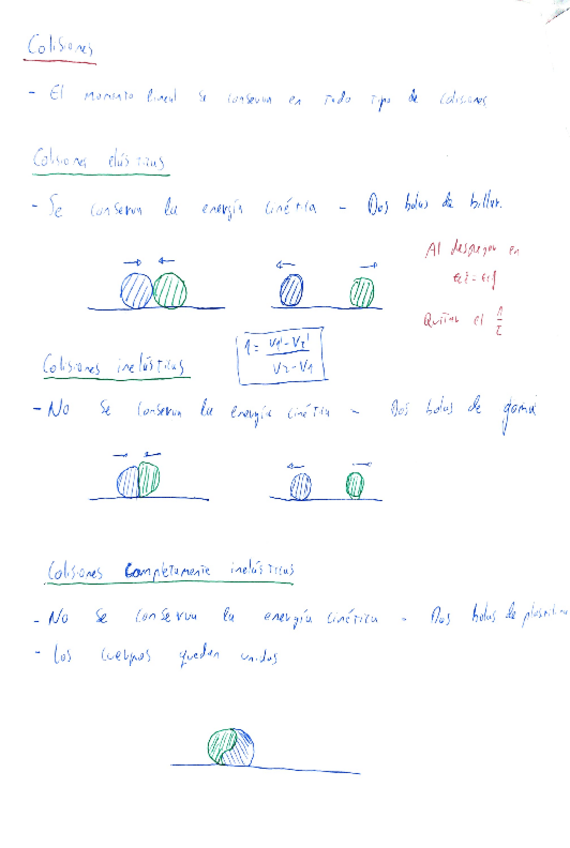 Colisiones
- El momento lineal se conserva en todo tipo de colisiones
Colisiones elásticas
- Se conserva la energía cinética - Dos bolas de billar.
Al despejar en
eci = ecf
Quitar el 1/2
1 = v1' - v2' / v2 - v1
Colisiones inelásticas
- No se conserva la energía cinética - Dos bolas de goma
Colisiones completamente inelásticas
- No se conserva la energía cinética - Dos bolas de plastilina
- Los cuerpos quedan unidos